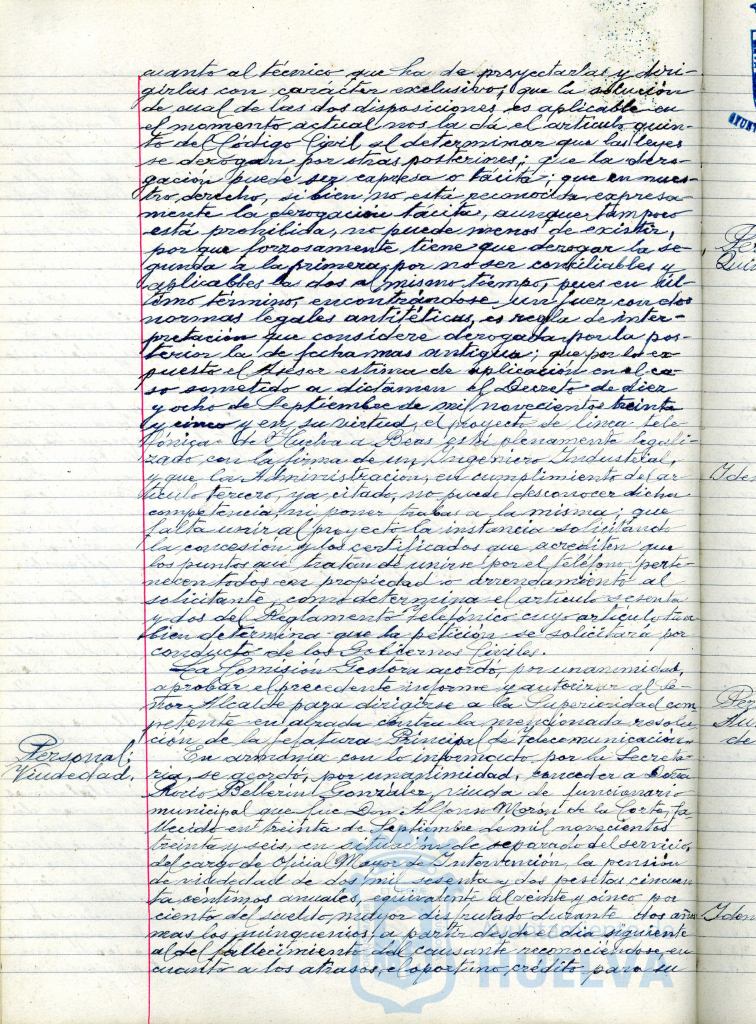 cuanto al técnico que ha de proyectarlas y diri-
girlas con carácter exclusivo; que la solución
de cual de las dos disposiciones es aplicable en
el momento actual nos la dá el artículo quin-
to del Código Civil al determinar que las leyes
se derogan por otras posteriores; que la dero-
gación puede ser expresa o tácita; que en nues-
tro derecho, si bien no está reconocida expresa-
mente la derogación tácita, aunque tampoco
está prohibida, no puede menos de existir,
por que forzosamente tiene que derogar la se-
gunda a la primera, por no ser conciliables y
aplicables las dos al mismo tiempo, pues en úl-
timo término, encontrándose un juez con dos
normas legales antitéticas, es regla de inter-
pretación que considere derogada por la pos-
terior la de fecha mas antigua; que por lo ex-
puesto el Asesor estima de aplicación en el ca-
so sometido a dictamen el Decreto de diez
y ocho de Septiembre de mil novecientos treinta
y cinco y en su virtud, el proyecto de línea tele-
fónica de Huelva a Beas está plenamente legali-
zado con la firma de un Ingeniero Industrial,
y que la Administración, en cumplimiento del ar-
tículo tercero, ya citado, no puede desconocer dicha
competencia ni poner trabas a la misma; que
falta unir al proyecto la instancia solicitando
la concesión y los certificados que acrediten que
los puntos que tratan de unirse por el teléfono perte-
necen todos en propiedad o arrendamiento al
solicitante, como determina el artículo sesenta
y dos del Reglamento telefónico cuyo artículo tam
bien determina que la petición se solicitará por
conducto de los Gobiernos Civiles.
La Comisión Gestora acordó, por unanimidad,
aprobar el precedente informe y autorizar al Se-
ñor Alcalde para dirigirse a la Superioridad com
petente en alzada contra la mencionada resolu-
ción de la Jefatura Principal de Telecomunicación.
Personal.
Viudedad.
En armonía con lo informado por la Secreta-
ria, se acordó, por unanimidad, conceder a Doña
Rocío Bellerín González, viuda de funcionario
municipal que fue Don Alfonso Morón de la Corte, fa
llecido en treinta de Septiembre de mil novecientos
treinta y seis, en situación de separado del servicio
del cargo de Oficial Mayor de Intervención, la pensión
de viudedad de dos mil sesenta y dos pesetas cincuen
ta céntimos anuales, equivalente al veinte y cinco por
ciento del sueldo mayor disfrutado durante dos años
mas los quinquenios, a partir desde el dia siguiente
al del fallecimiento del causante reconociéndose, en
cuanto a los atrasos, el oportuno crédito para su
HUELVA